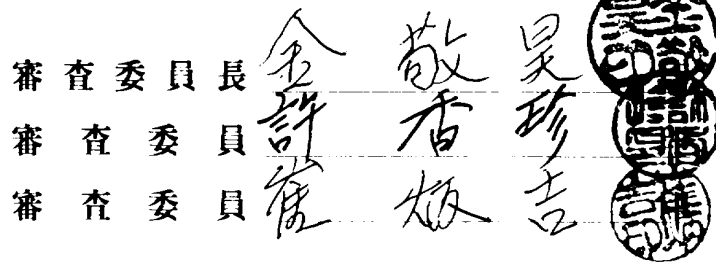 審査委員長 金 敬 昊
審査委員 許 香 珍
審査委員 崔 炳 吉